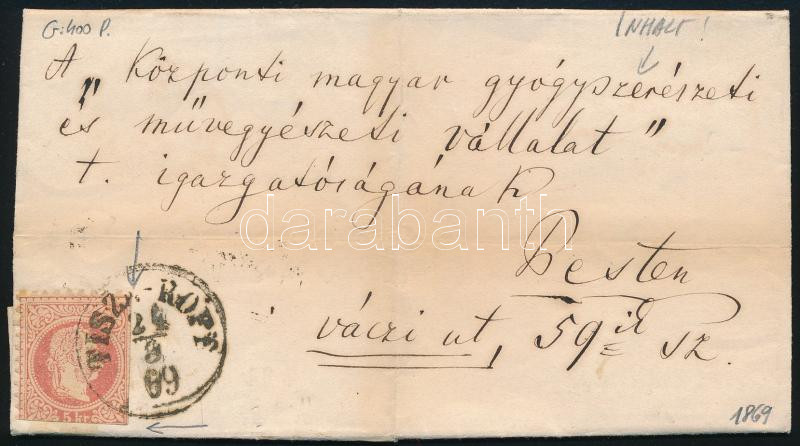 G:400 P.
INHALT!
A „Központi magyar gyógyszerészeti
és művegyészeti vállalat"
t. igazgatóságának
Pesten
váczi ut, 59ik sz.
darabanth
TISZA-ROFF
24
8
69
5 kr
1869